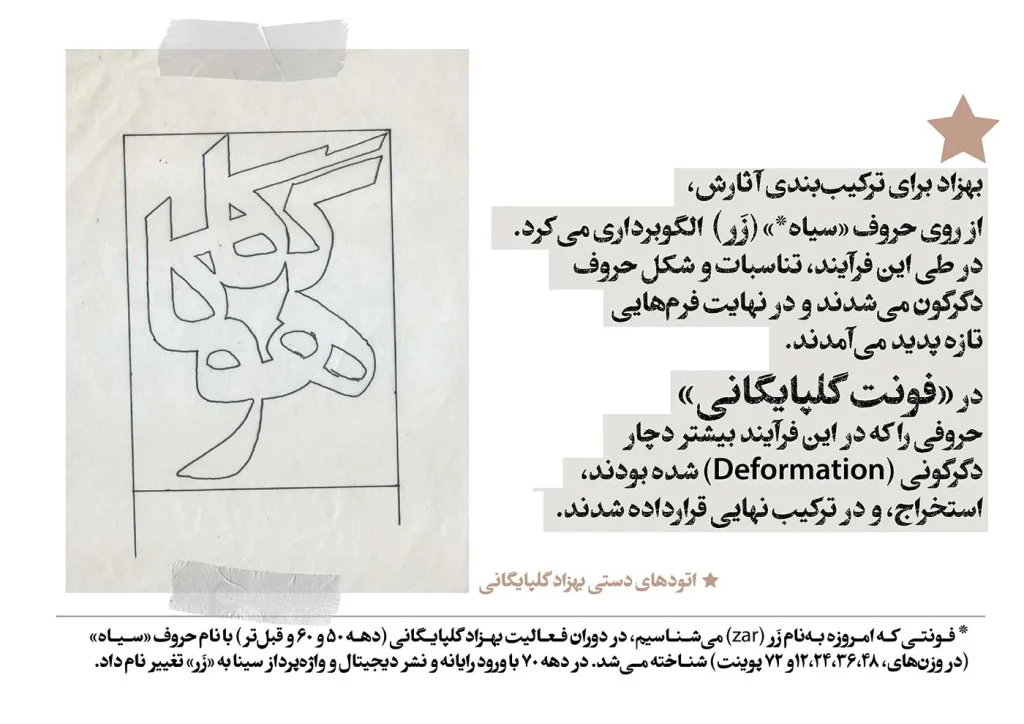 بهزاد برای ترکیب‌بندی آثارش،
از روی حروف «سیاه*» (زَر) الگوبرداری می‌کرد.
در طی این فرآیند، تناسبات و شکل حروف
دگرگون می‌شدند و در نهایت فرم‌هایی
تازه پدید می‌آمدند.
در «فونت گلپایگانی»
حروفی را که در این فرآیند بیشتر دچار
دگرگونی (Deformation) شده بودند،
استخراج، و در ترکیب نهایی قرار داده شدند.
★ اتودهای دستی بهزاد گلپایگانی
* فونتی که امروزه به‌نام زَر (zar) می‌شناسیم، در دوران فعالیت بهزاد گلپایگانی (دهه ۵۰ و ۶۰ و قبل‌تر) با نام حروف «سیاه»
(در وزن‌های، ۱۲،۲۴،۳۶،۴۸ و ۷۲ پوینت) شناخته می‌شد. در دهه ۷۰ با ورود رایانه و نشر دیجیتال و واژه‌پرداز سینا به «زَر» تغییر نام داد.